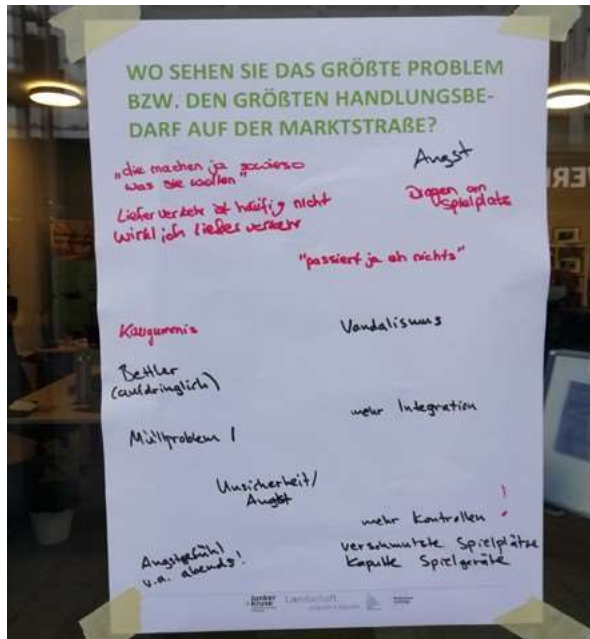 WO SEHEN SIE DAS GRÖßTE PROBLEM
BZW. DEN GRÖßTEN HANDLUNGSBE-
DARF AUF DER MARKTSTRAßE?
„die machen ja sowieso
was sie wollen"
Angst
Drogen am
Spielplatz
Lieferverkehr ist häufig nicht
wirklich Lieferverkehr
"passiert ja eh nichts"
Kaugummis
Vandalismus
Bettler
(aufdringlich)
mehr Integration
Müllproblem !
Unsicherheit/
Angst
mehr Kontrollen !
verschmutzte Spielplätze
kaputte Spielgeräte
Angstgefühl
v.a. abends!
junker
+kruse
Landschaft